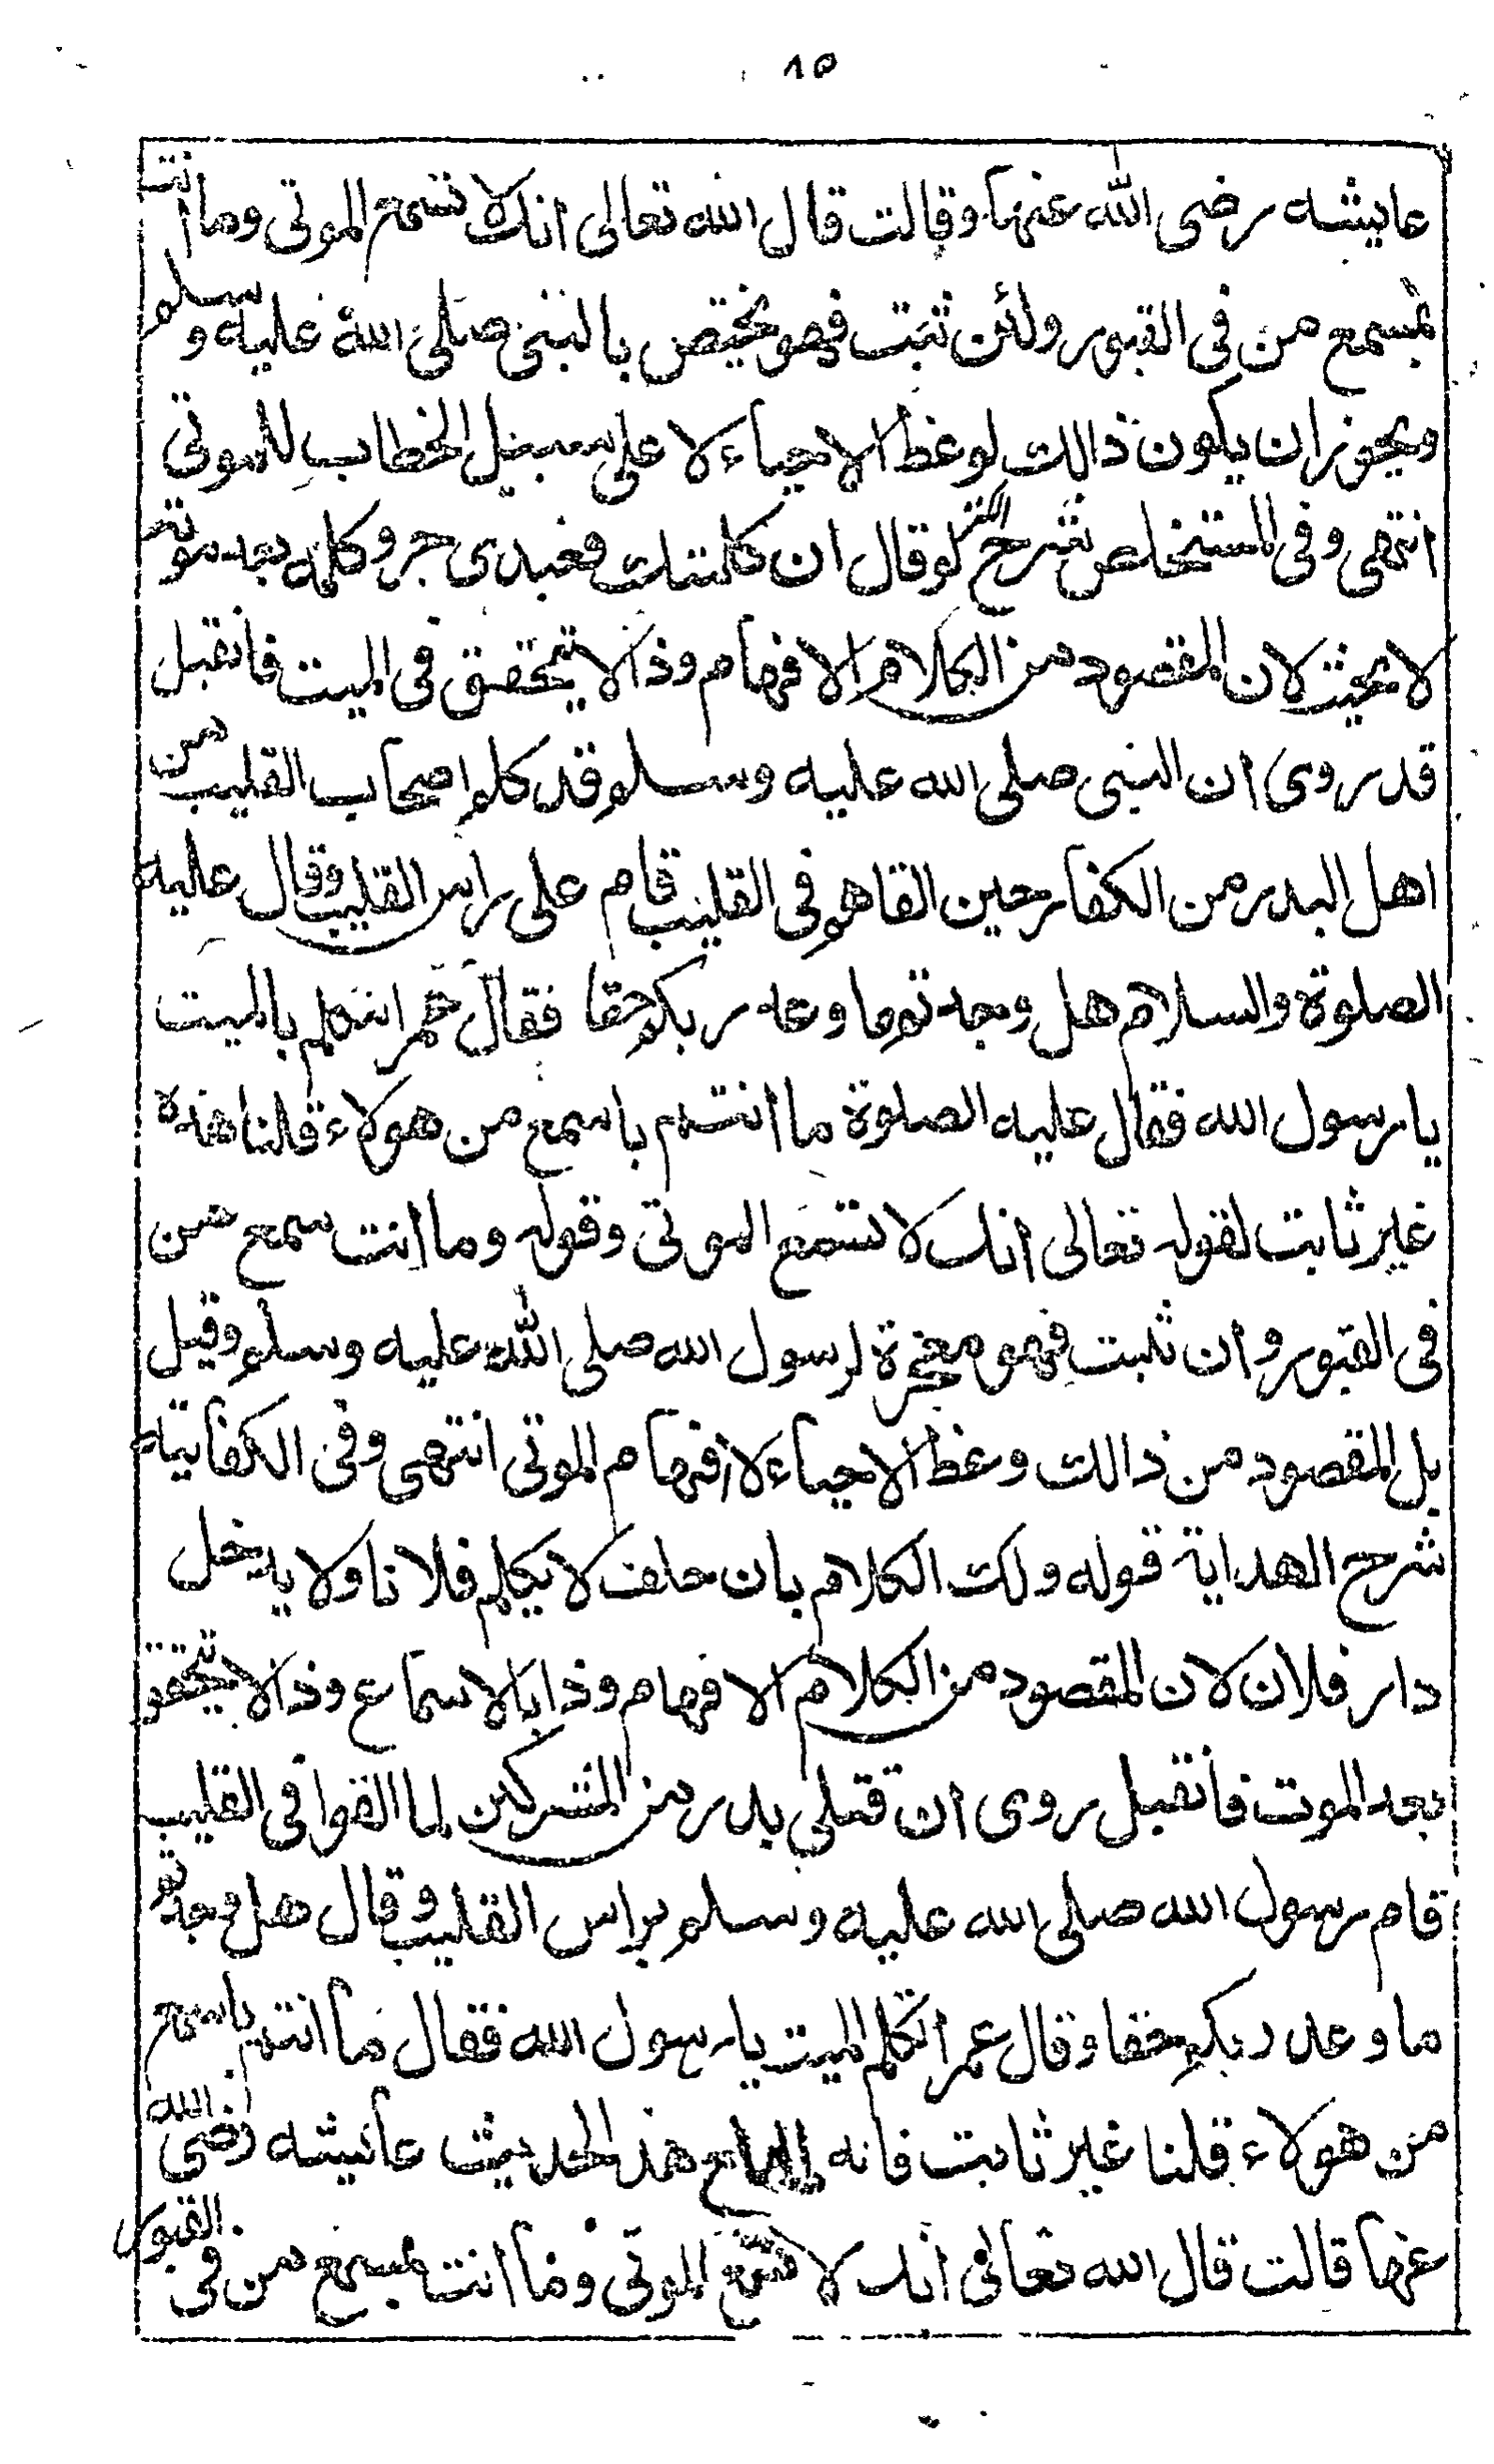 ١٥
عايشه رضى الله عنها وقالت قال الله تعالى انك لا تسمع الموتى وما انت
بمسمع من فى القبور ولئن ثبت فهو مختص بالنبى صلى الله عليه وسلم
ويجوز ان يكون ذالك لوعظ الاحياء لا على سبيل الخطاب للموتى
انتهى وفى المستخلص شرح الكنز لو قال ان كلمتك فعبدى حر وكلمه بعد موته
لا يحنث لان المقصود من الكلام الافهام وذا لا يتحقق فى الميت فان قيل
قد روى ان النبى صلى الله عليه وسلم قد كلم اصحاب القليب من
اهل البدر من الكفار حين القاهم فى القليب قام على راس القليب وقال عليه
الصلوة والسلام هل وجدتم ما وعد ربكم حقا فقال عمر اتتكلم بالميت
يا رسول الله فقال عليه الصلوة ما انتم باسمع من هولاء قلنا هذه
غير ثابت لقوله تعالى انك لا تسمع الموتى وقوله وما انت سمع من
فى القبور وان ثبت فهو معجزة لرسول الله صلى الله عليه وسلم وقيل
بل المقصود من ذالك وعظ الاحياء لا افهام الموتى انتهى وفى الكفايته
شرح الهداية قوله وكذا الكلام بان حلف لا يكلم فلانا ولا يدخل
دار فلان لان المقصود من الكلام الافهام وذا بالاسماع وذا لا يتحقق
بعد الموت فان قيل روى ان قتلى بدر من المشركين لما القوا فى القليب
قام رسول الله صلى الله عليه وسلم براس القليب وقال هل وجدتم
ما وعد ربكم حقا وقال عمر اتكلم الميت يا رسول الله فقال ما انتم باسمع
من هولاء قلنا غير ثابت فانه هذ الحديث عايشه رضى الله
عنها قالت قال الله تعالى انك لا تسمع الموتى وما انت بمسمع من فى القبور